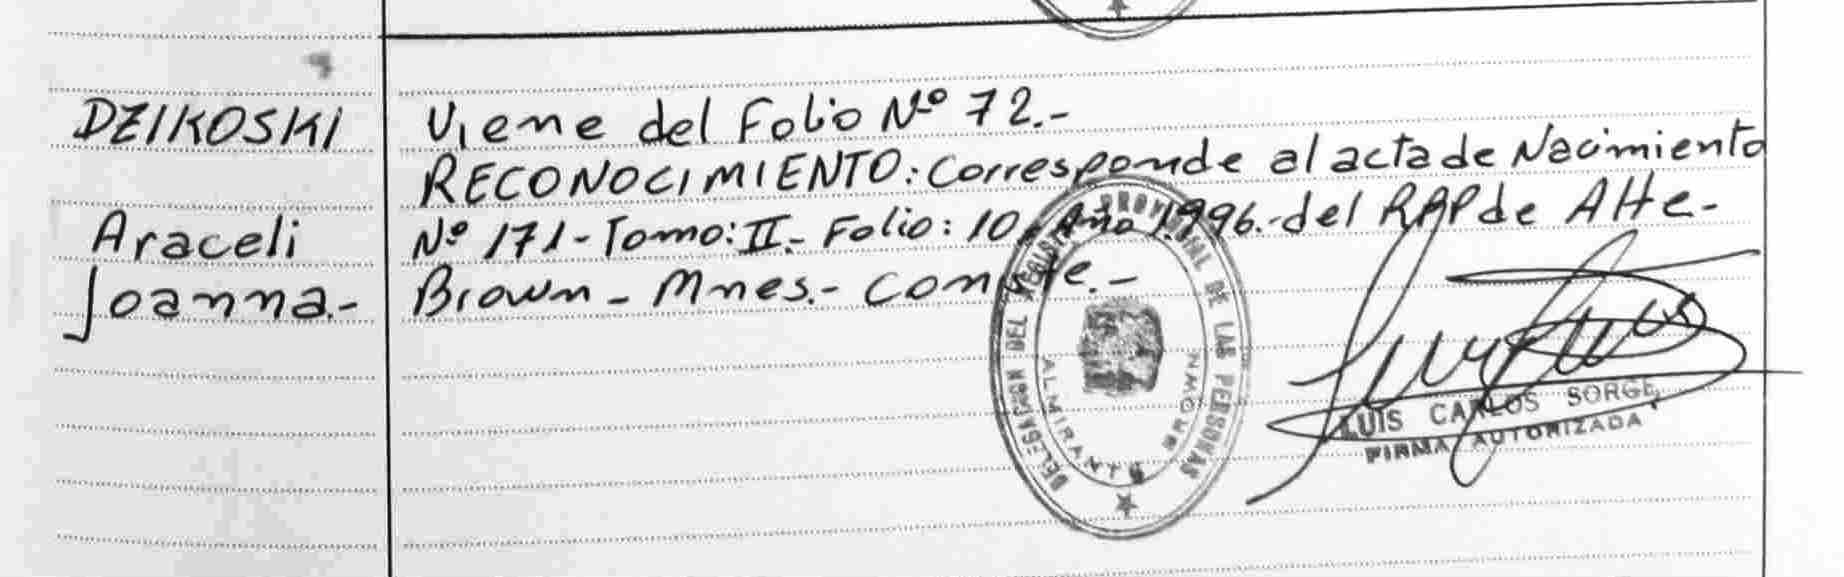 DZIKOSKI
Araceli
Joanna.-
Viene del Folio Nº 72.-
RECONOCIMIENTO: Corresponde al acta de Nacimiento
Nº 171- Tomo: II.- Folio: 10. Año 1.996.- del RPP de Alte-
Brown - Mnes.- Conste.-
DELEGACION DEL REGISTRO PROVINCIAL DE LAS PERSONAS
ALMIRANTE BROWN
LUIS CARLOS SORGE
FIRMA AUTORIZADA